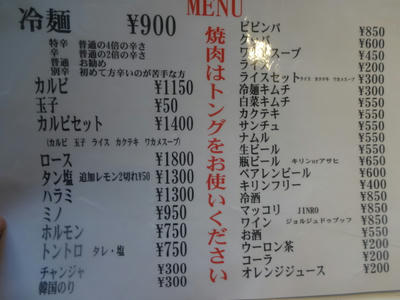 MENU
冷麺 ¥900
特辛 普通の4倍の辛さ
辛 普通の2倍の辛さ
普通 お勧め
別辛 初めて方辛いのが苦手な方
カルビ ¥1150
玉子 ¥50
カルビセット ¥1400
(カルビ 玉子 ライス カクテキ ワカメスープ)
ロース ¥1800
タン塩 追加レモン2切れ¥50 ¥1300
ハラミ ¥1300
ミノ ¥950
ホルモン ¥750
トントロ タレ・塩 ¥750
チャンジャ ¥300
韓国のり ¥300
焼肉はトングをお使いください
ビビンバ ¥850
クッパ ¥600
ワカメスープ ¥450
ライス ¥200
ライスセット ライス カクテキ ワカメスープ ¥300
冷麺キムチ ¥300
白菜キムチ ¥550
カクテキ ¥550
サンチュ ¥550
ナムル ¥550
生ビール ¥550
瓶ビール キリンorアサヒ ¥650
ベアレンビール ¥600
キリンフリー ¥400
冷酒 ¥850
マッコリ JINRO ¥850
ワイン ジョルジュドゥブッフ ¥850
お酒 ¥550
ウーロン茶 ¥200
コーラ ¥200
オレンジジュース ¥200